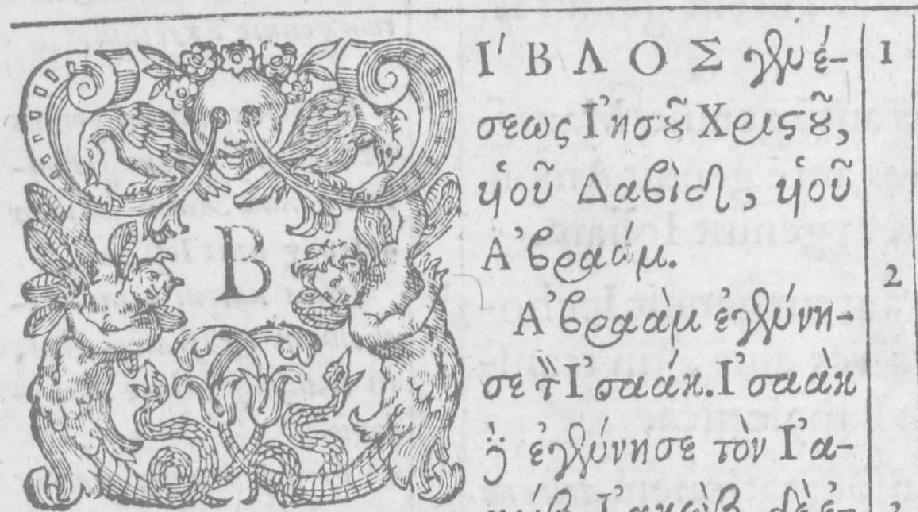 ΒΙ΄ΒΛΟΣ γενέ-
σεως Ἰησοῦ Χριστοῦ,
υἱοῦ Δαβὶδ, υἱοῦ
Ἀβραάμ.
Ἀβραὰμ ἐγέννη-
σε τὸν Ἰσαάκ. Ἰσαὰκ
δὲ ἐγέννησε τὸν Ἰα-
1
2